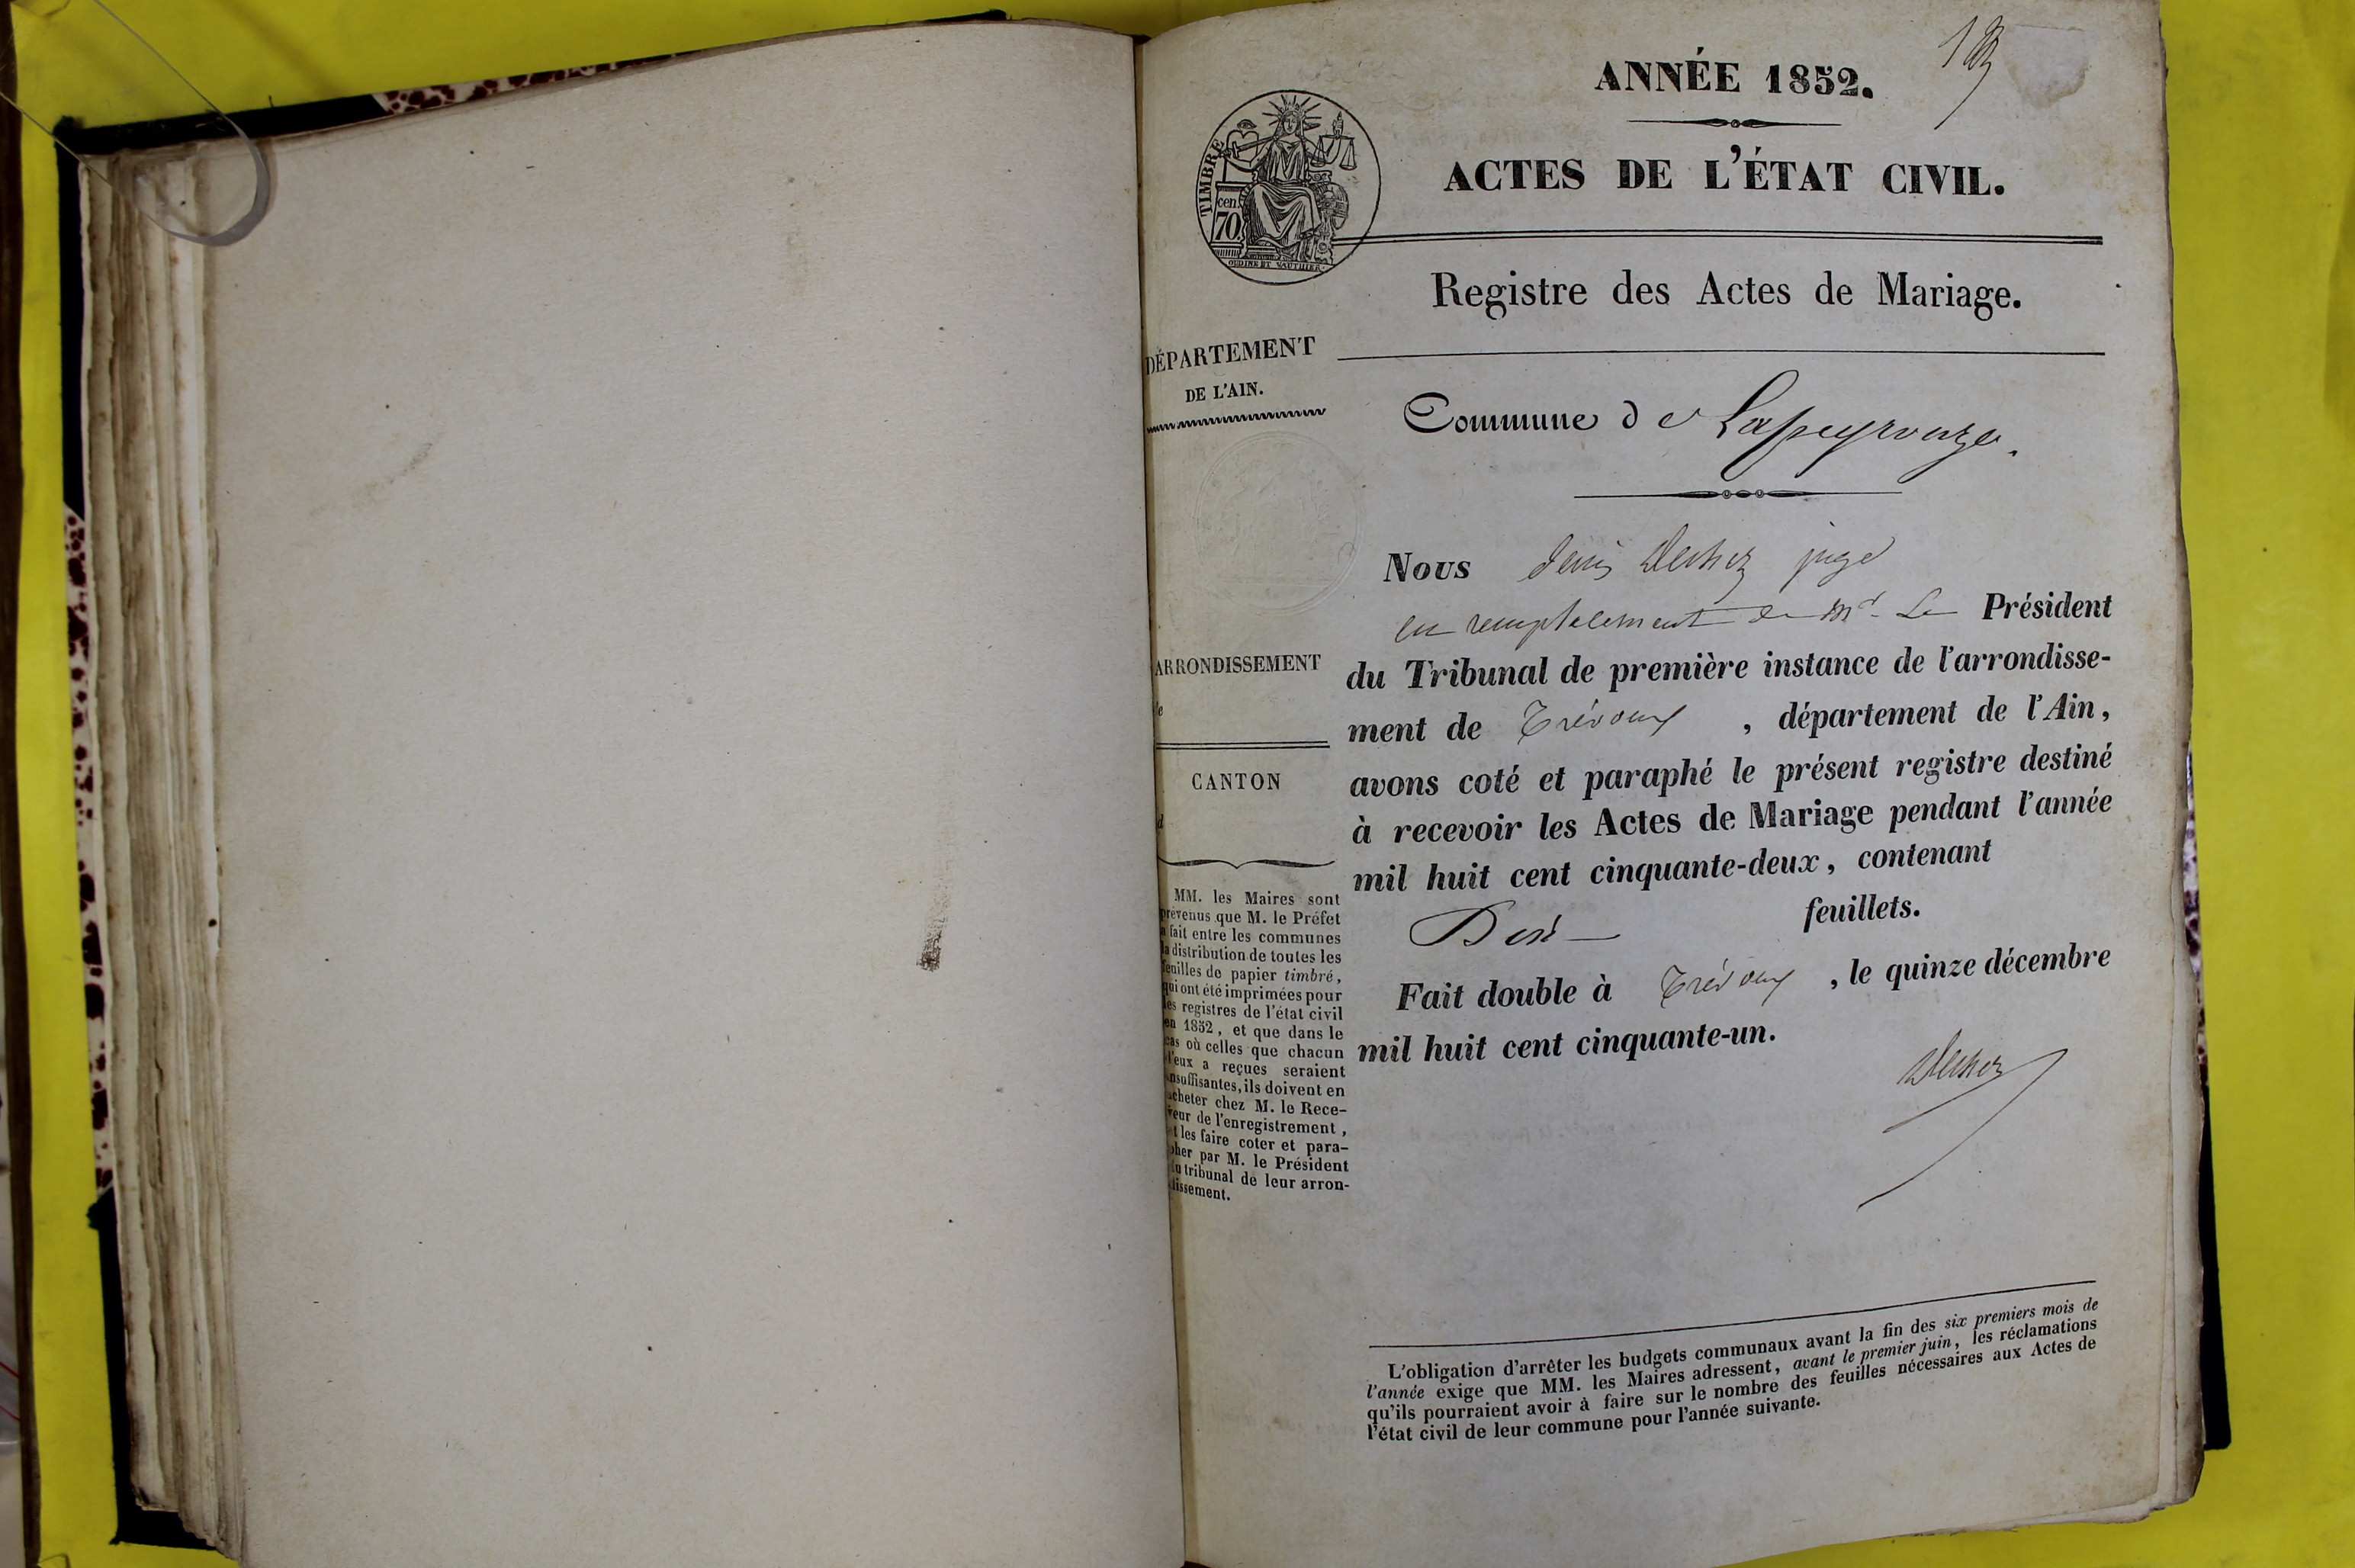 ANNÉE 1852.
TIMBRE
cen.
70
OUDINÉ ET VAUTHIER
ACTES DE L'ÉTAT CIVIL.
Registre des Actes de Mariage.
DÉPARTEMENT
DE L'AIN.
Commune de Lapeyrouze.
Nous Denis juge
en remplacement de Mr. Le Président
du Tribunal de première instance de l'arrondisse-
ment de Trévoux , département de l'Ain,
avons coté et paraphé le présent registre destiné
à recevoir les Actes de Mariage pendant l'année
mil huit cent cinquante-deux, contenant
feuillets.
Fait double à Trévoux , le quinze décembre
mil huit cent cinquante-un.
ARRONDISSEMENT
CANTON
MM. les Maires sont
prévenus que M. le Préfet
a fait entre les communes
la distribution de toutes les
feuilles de papier timbré,
qui ont été imprimées pour
les registres de l'état civil
en 1852, et que dans le
cas où celles que chacun
d'eux a reçues seraient
insuffisantes, ils doivent en
acheter chez M. le Rece-
veur de l'enregistrement,
et les faire coter et para-
pher par M. le Président
du tribunal de leur arron-
dissement.
L'obligation d'arrêter les budgets communaux avant la fin des six premiers mois de
l'année exige que MM. les Maires adressent, avant le premier juin, les réclamations
qu'ils pourraient avoir à faire sur le nombre des feuilles nécessaires aux Actes de
l'état civil de leur commune pour l'année suivante.